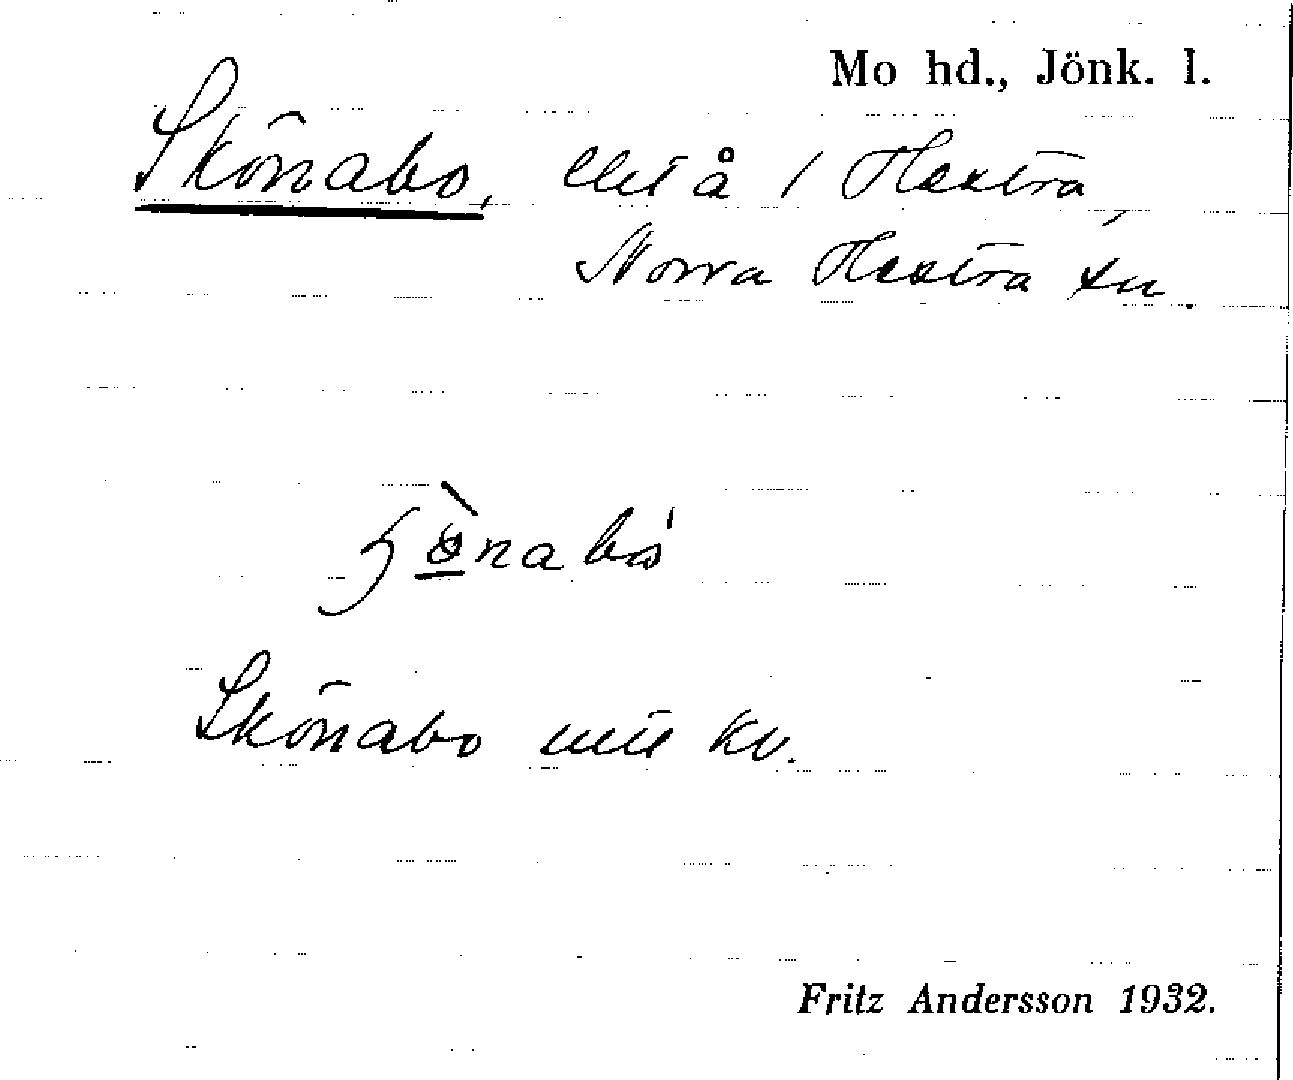 Mo hd., Jönk. l.
Skönabo, å / Hestra,
Norra Hestra sn.
Skönabo kv.
Fritz Andersson 1932.